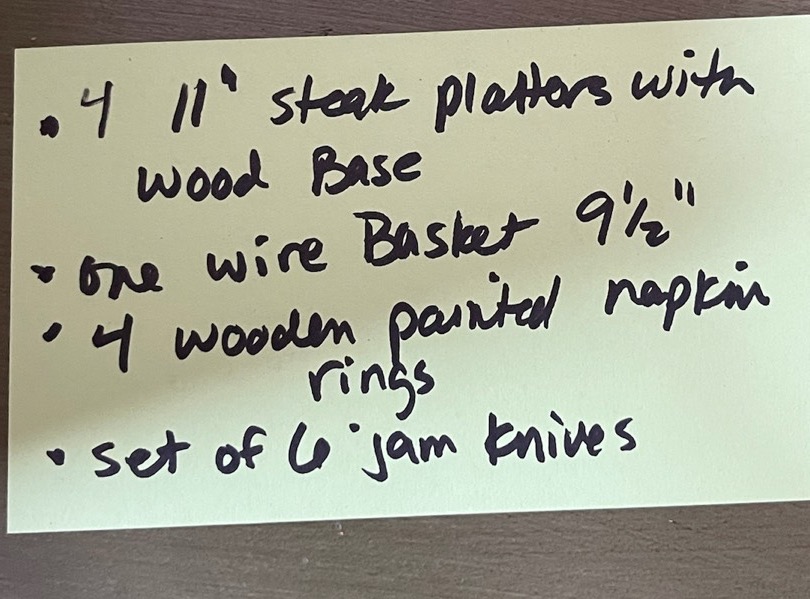 • 4 11" steak platters with
wood Base
• one wire Basket 9 1/2"
• 4 wooden painted napkin
rings
• set of 6 jam knives